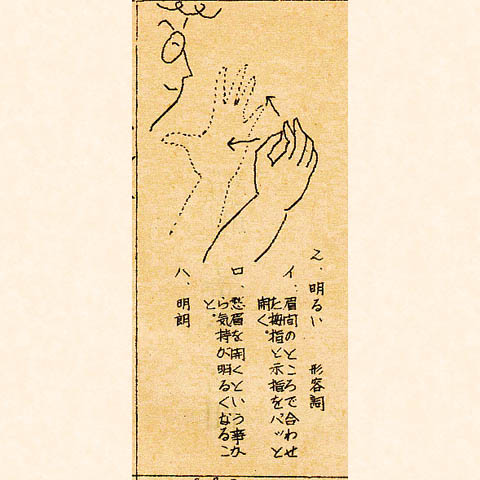 2、明るい　形容詞
イ、眉間のところで合わせ
た拇指と示指をパッと
開く。
ロ、愁眉を開くという事か
ら気持が明るくなるこ
と。
ハ、明朗